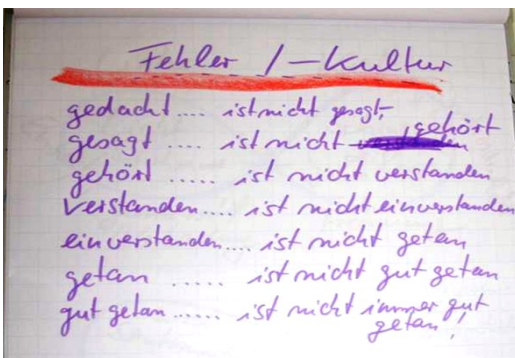 Fehler /-Kultur
gedacht .... ist nicht gesagt,
gesagt .... ist nicht gehört
gehört ..... ist nicht verstanden
verstanden.... ist nicht einverstanden
einverstanden.... ist nicht getan
getan ..... ist nicht gut getan
gut getan ..... ist nicht immer gut
getan!